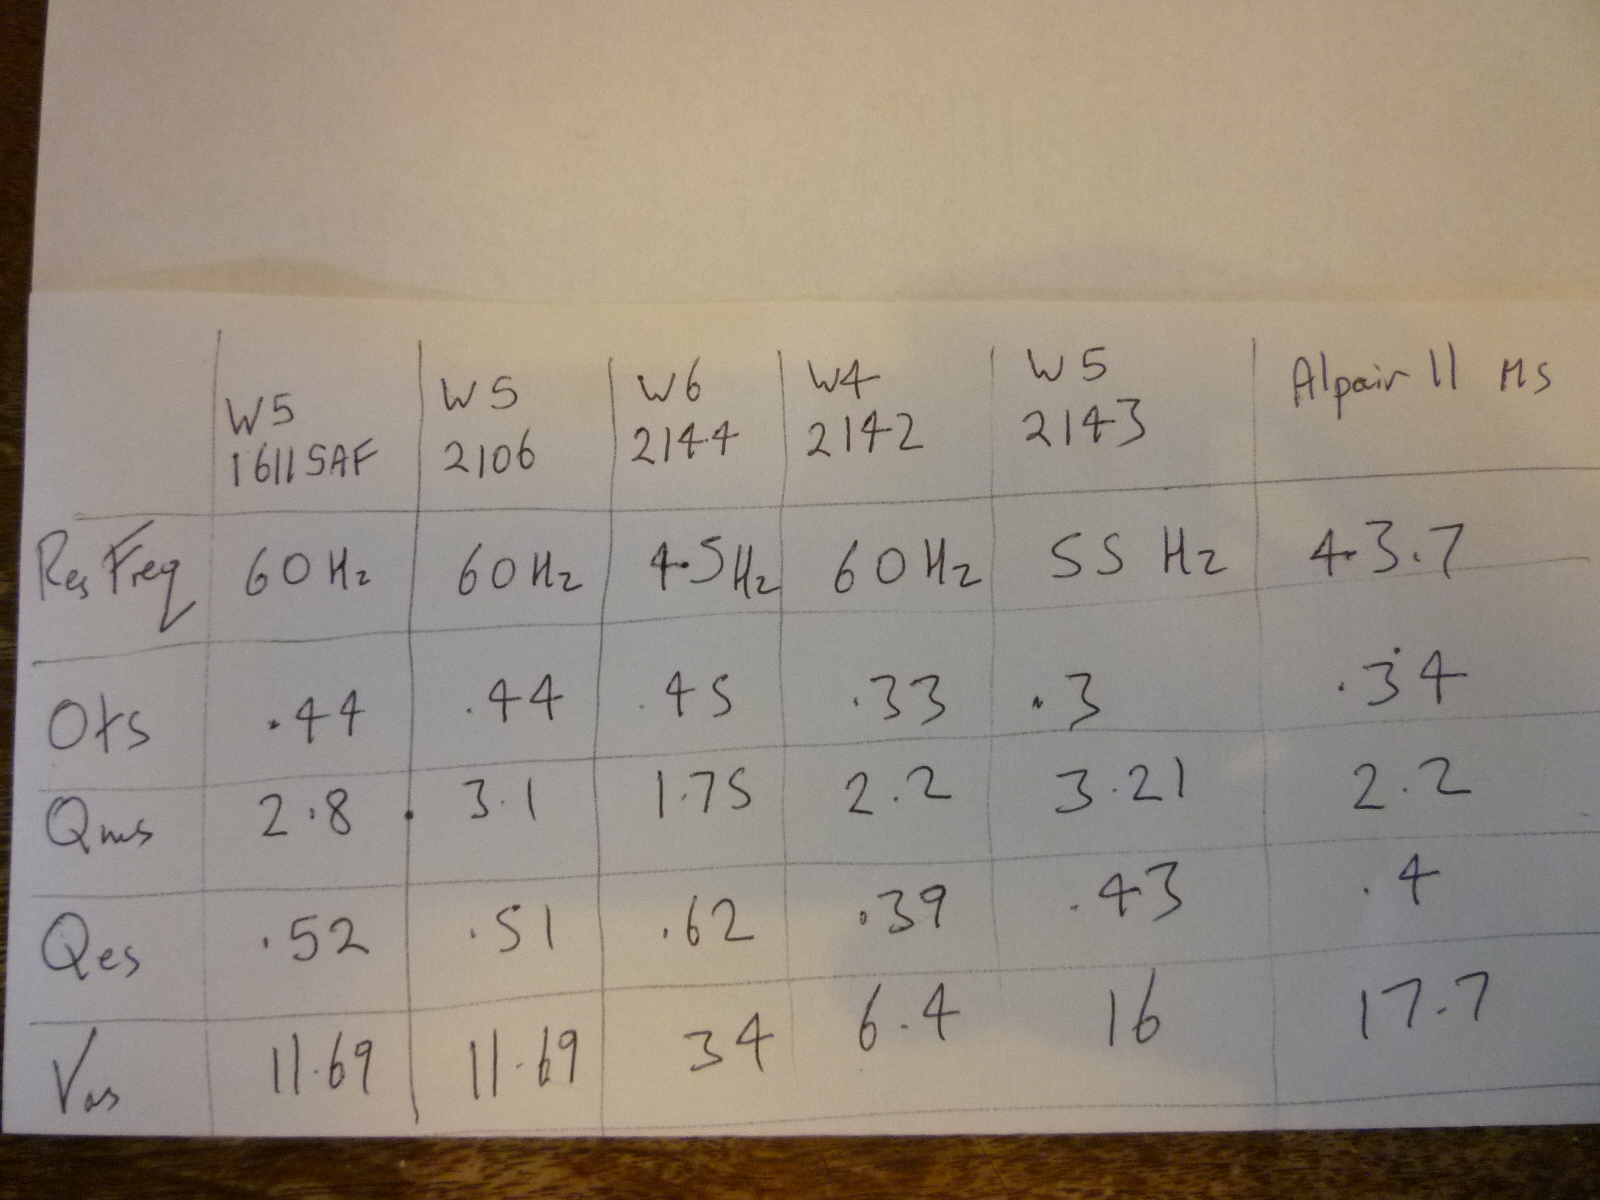 W5 W5 W6 W4 W5 Alpair 11 MS
1611SAF 2106 2144 2142 2143
Res Freq 60Hz 60Hz 45Hz 60Hz 55 Hz 43.7
Qts .44 .44 .45 .33 .3 .34
Qms 2.8 3.1 1.75 2.2 3.21 2.2
Qes .52 .51 .62 .39 .43 .4
Vas 11.69 11.69 34 6.4 16 17.7